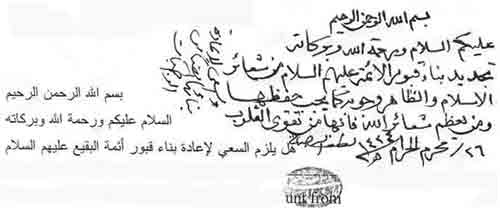 بسم الله الرحمن الرحيم
عليكم السلام ورحمة الله وبركاته
تجديد بناء قبور الائمة عليهم السلام من شعائر
الاسلام والظاهر وجوبه كما يجب حفظها
ومن يعظم شعائر الله فانها من تقوى القلوب
٢٦/ محرم الحرام
بسم الله الرحمن الرحيم
السلام عليكم ورحمة الله وبركاته
هل يلزم السعي لإعادة بناء قبور أئمة البقيع عليهم السلام
unt from